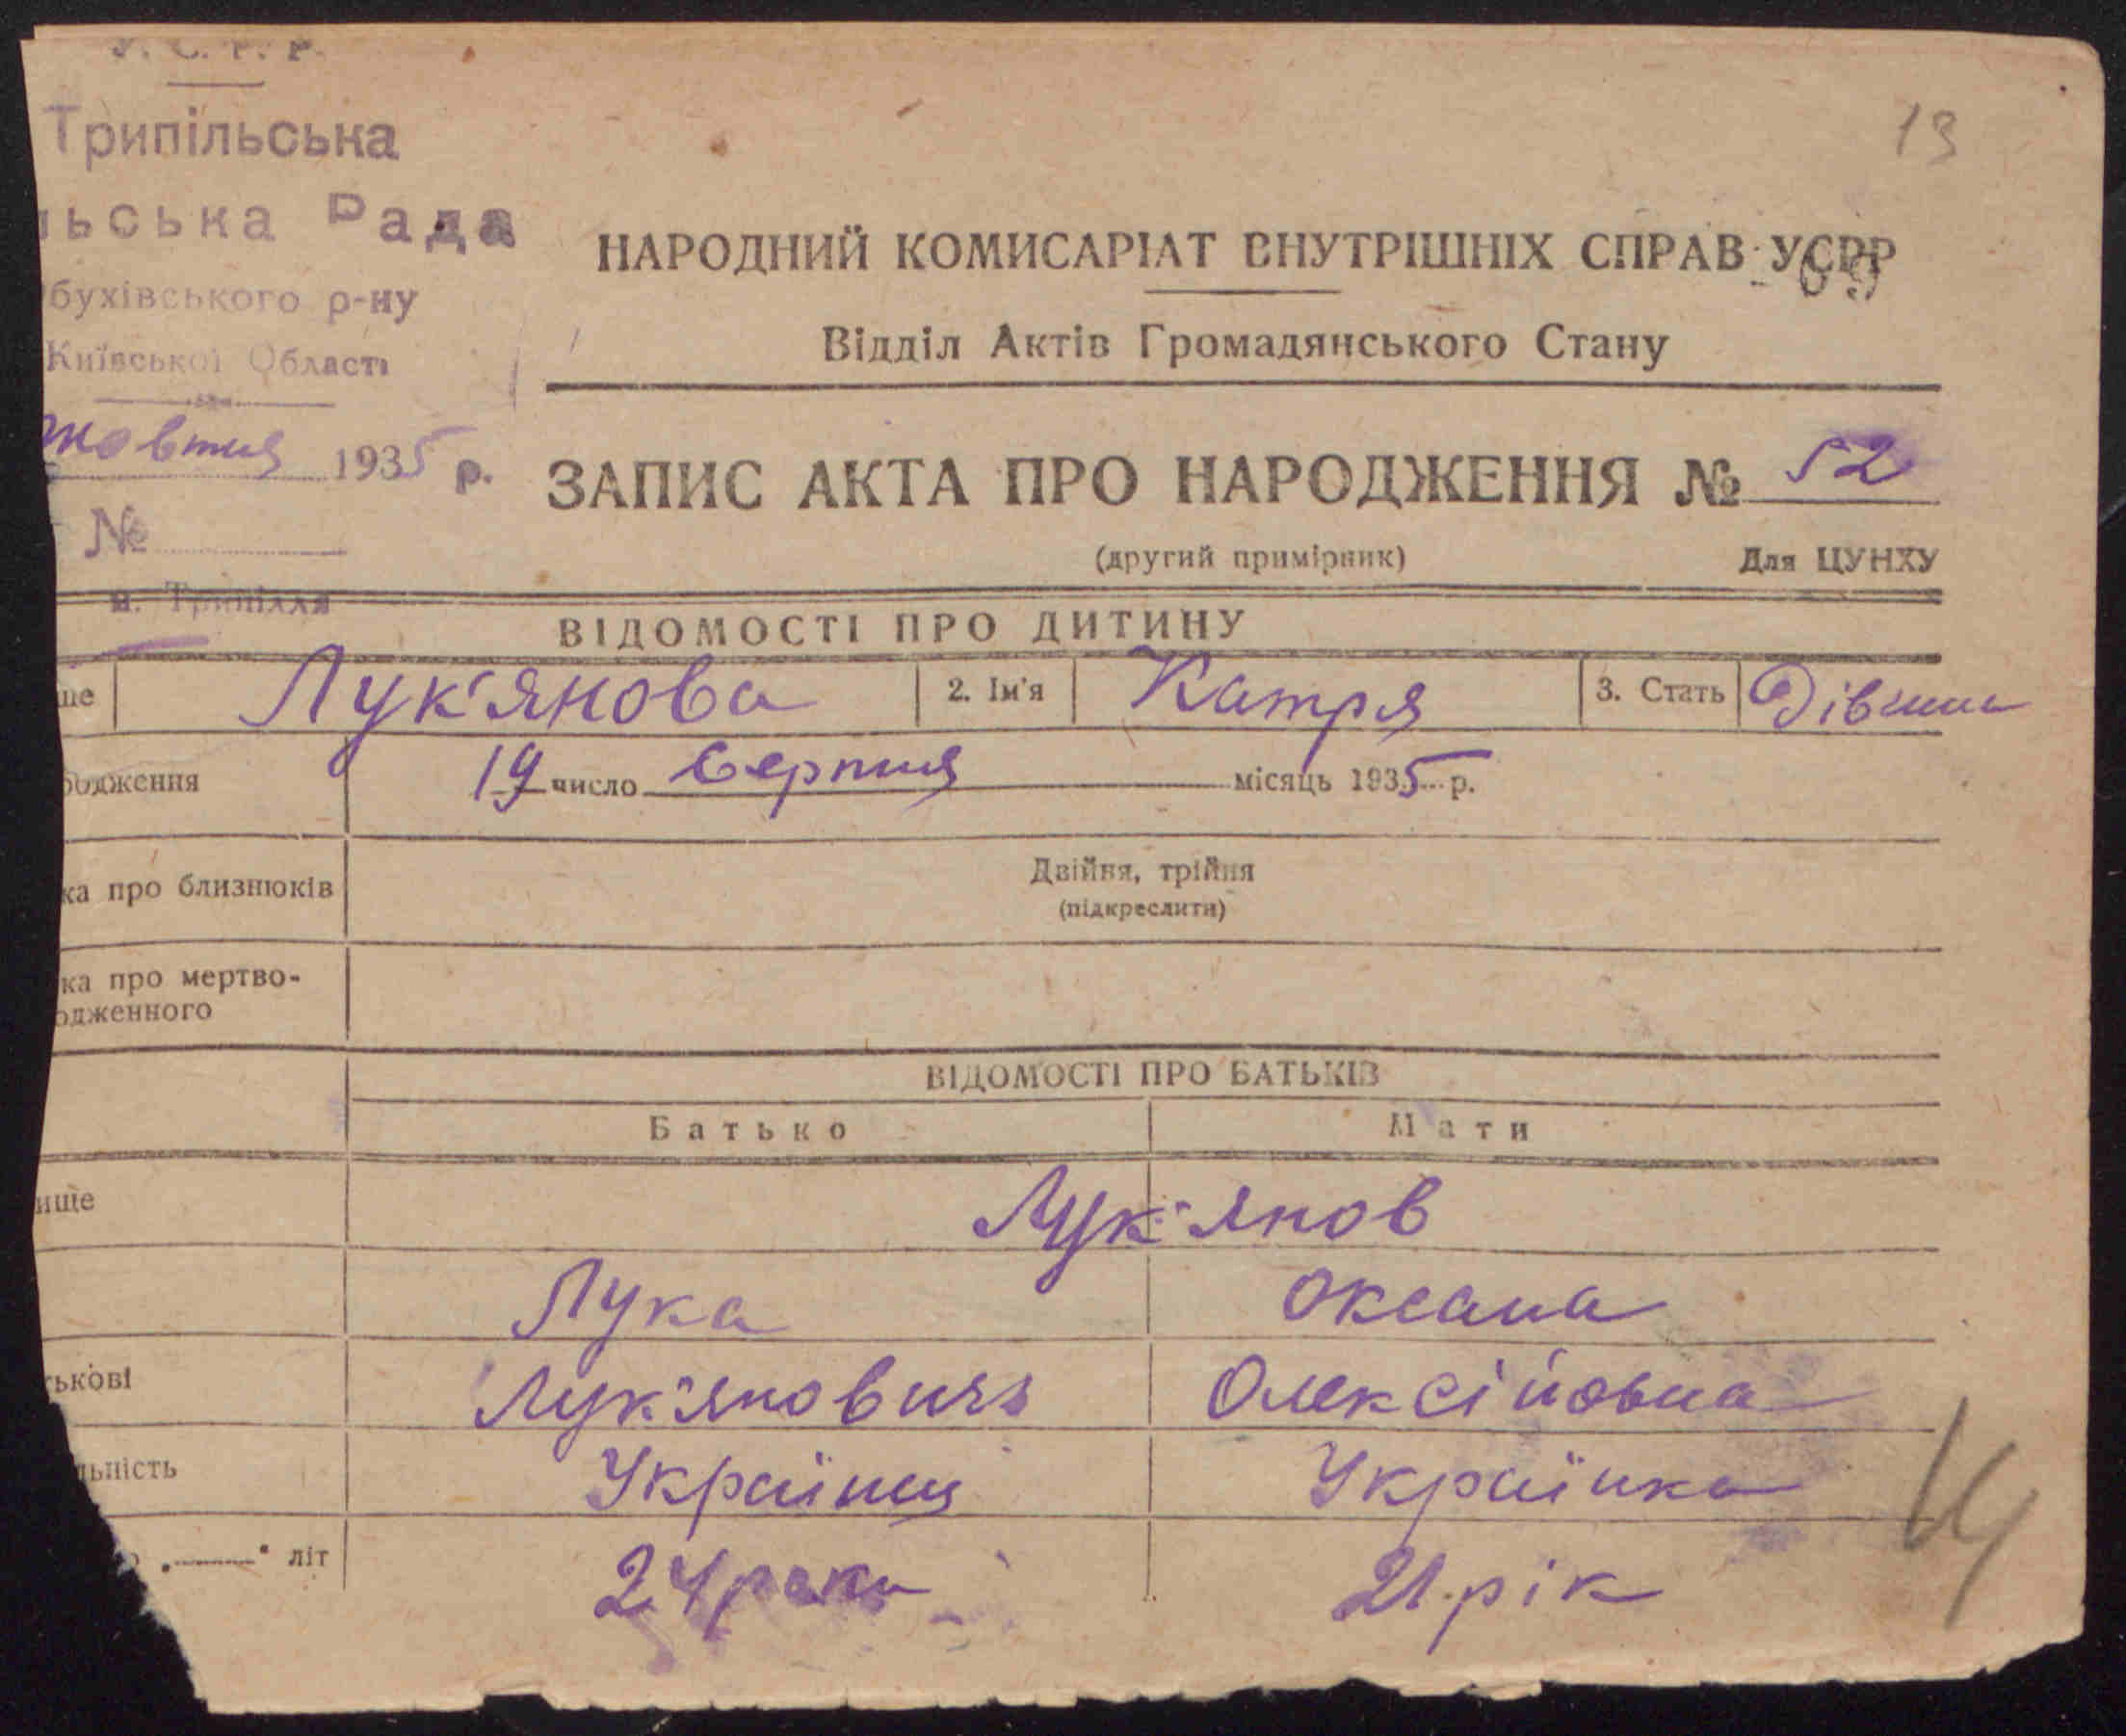 У. С. Р. Р.
13
Трипільська
льська Рада
НАРОДНИЙ КОМИСАРІАТ ВНУТРІШНІХ СПРАВ УСРР
69
бухівського р-ну
Відділ Актів Громадянського Стану
Київської Області
жовтня 1935 р.
ЗАПИС АКТА ПРО НАРОДЖЕННЯ № 52
№
(другий примірник) Для ЦУНХУ
м. Трипілля
ВІДОМОСТІ ПРО ДИТИНУ
ще Лук'янова 2. Ім'я Катря 3. Стать Дівчина
родження 19 число Серпня місяць 1935 р.
ка про близнюків Двійня, трійня
(підкреслити)
ка про мертво-
одженного
ВІДОМОСТІ ПРО БАТЬКІВ
Батько Мати
ище Лук'янов
Лука Оксана
ькові Лук'янович Олексійовна
льність Українец Українка
„ “ літ 24 роки 21 рік